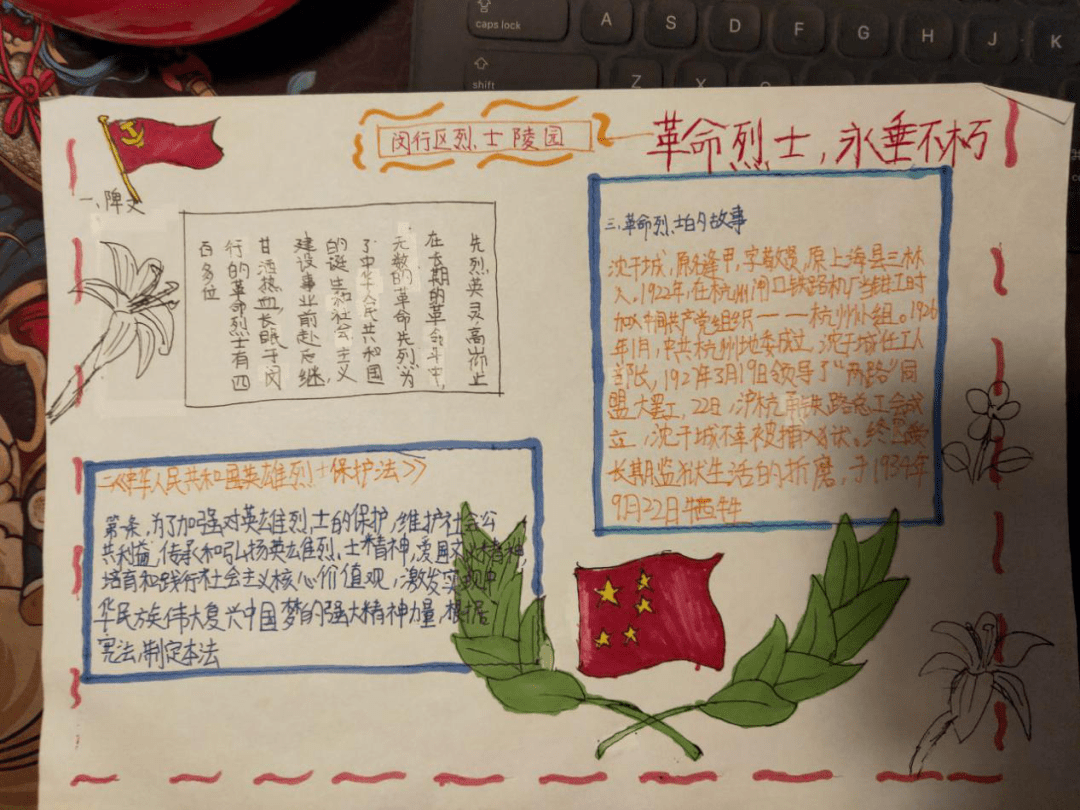 caps lock
A
S
D
F
G
H
J
K
shift
Z
X
闵行区烈士陵园
革命烈士，永垂不朽
一、碑文
先烈英灵，高尚止
在长期的革命斗争中，
无数的革命先烈为
了中华人民共和国
的诞生和社会主义
建设事业前赴后继，
甘洒热血，长眠于闵
行的革命烈士有四
百多位
三、革命烈士的故事
沈干城，原名逢甲，字敬燮，原上海县三林
人。1922年，在杭州闸口铁路机厂当钳工时
加入中国共产党组织——杭州小组。1926
年1月，中共杭州地委成立，沈干城任工人
部长，1927年3月19日领导了“两路”同
盟大罢工，22日，沪杭甬铁路总工会成
立，沈干城不幸被捕入狱。终
长期监狱生活的折磨，于1934年
9月22日牺牲
二《中华人民共和国英雄烈士保护法》
第一条，为了加强对英雄烈士的保护，维护社会公
共利益，传承和弘扬英雄烈士精神，爱国主义精神，
培育和践行社会主义核心价值观，激发实现中
华民族伟大复兴中国梦的强大精神力量，根据
宪法，制定本法